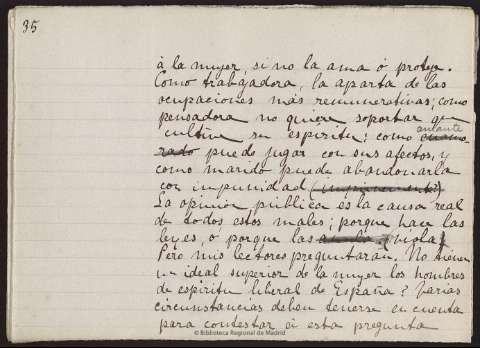 35
á la mujer, si no la ama ó proteje.
Como trabajadora, la aparta de las
ocupaciones más remunerativas; como
pensadora no quiere soportar que
cultive su espíritu; como amante
puede jugar con sus afectos, y
como marido puede abandonarla
con impunidad
La opinión pública es la causa real
de todos estos males; porque hace las
leyes, ó porque las (viola).
Pero mis lectores preguntarán. No tienen
un ideal superior de la mujer los hombres
de espíritu liberal de España? Varias
circunstancias deben tenerse en cuenta
para contestar á esta pregunta
© Biblioteca Regional de Madrid